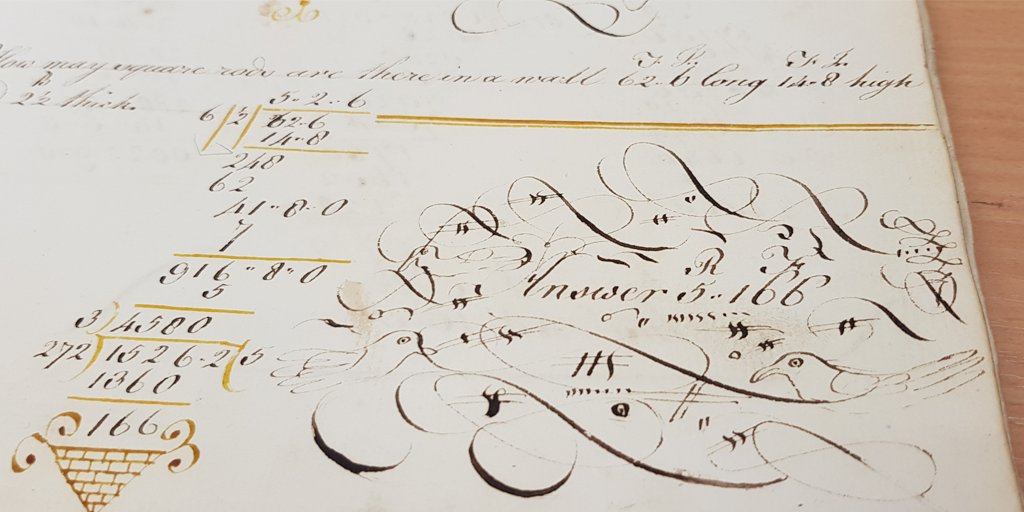 F. I. F. I.
How may square rods are there in a wall 62..6 long 14..8 high
B
2½ thick.
5..2..6
6 / 2 / 62..6
14..8
248
62
41..8..0
7
916..8..0
5
3) 4580
272) 1526..2 (5
1360
166
R F
Answer 5..166